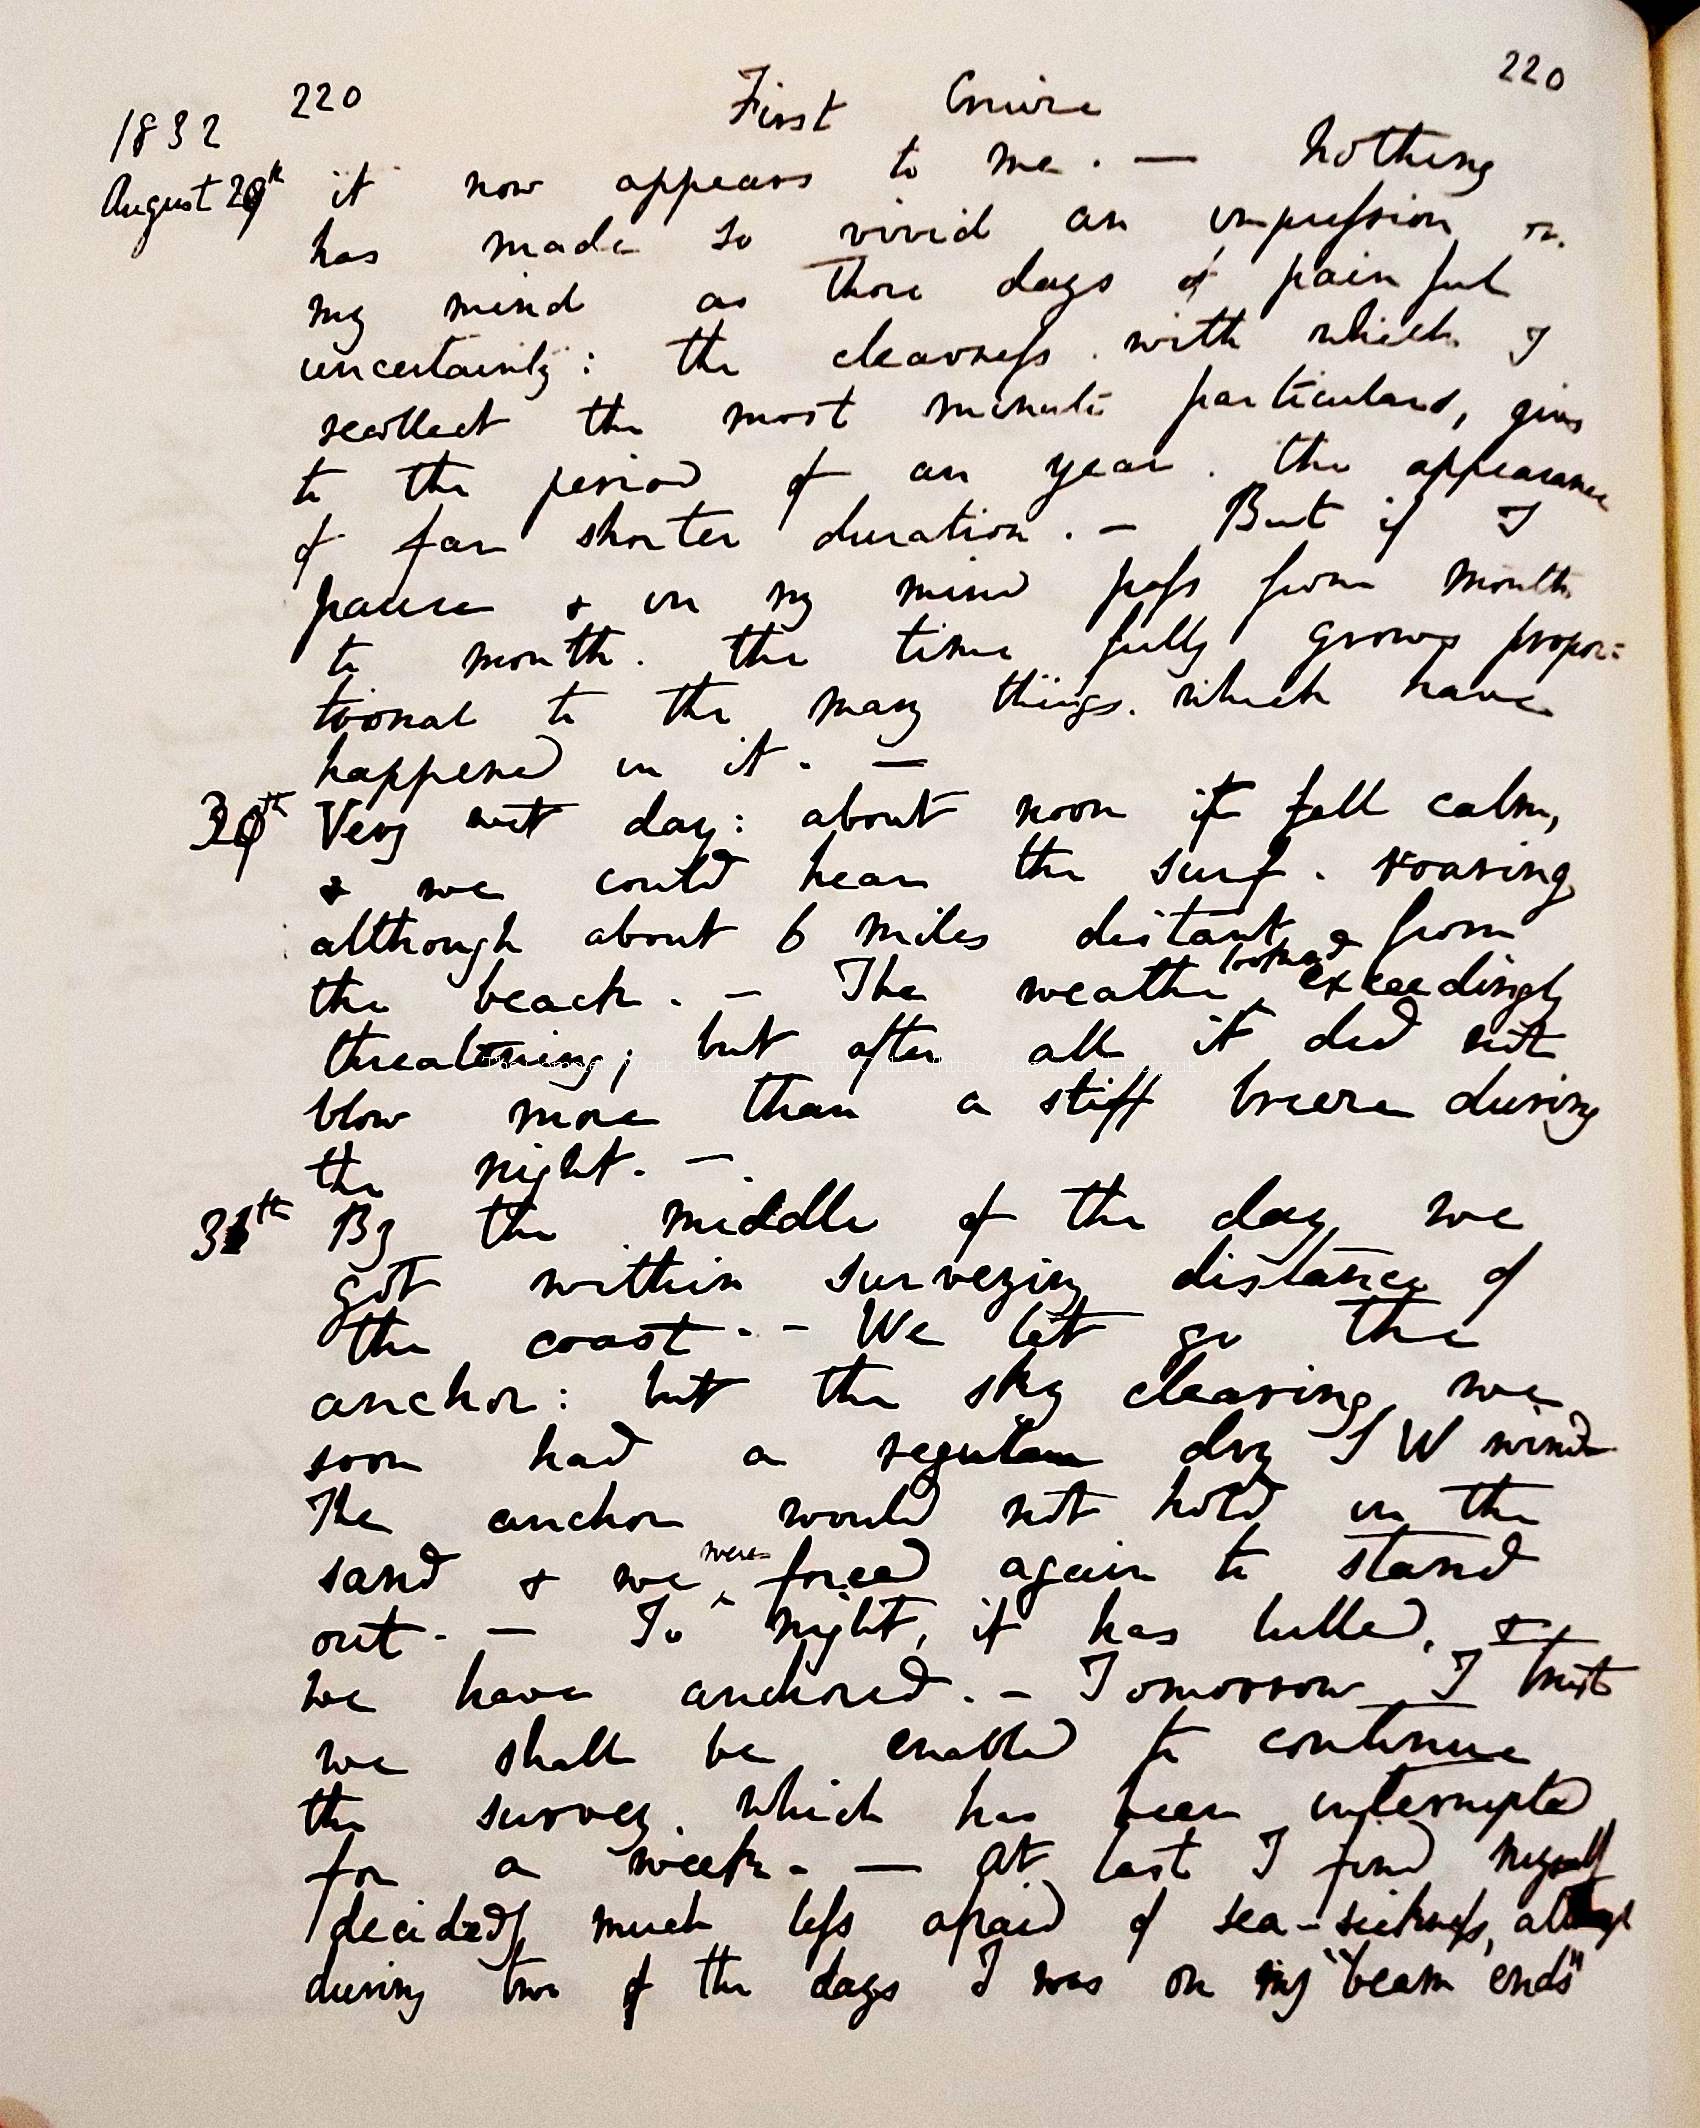 220 First Cruize 220
1832
August 29th it now appears to me. — Nothing
has made so vivid an impression on
my mind as those days of painful
uncertainty: the clearness with which I
recollect the most minute particulars, gives
to the period of an year. the appearance
of far shorter duration. — But if I
pause & in my mind pass from month
to month. the time fully grows propor:
tional to the many things. which have
happened in it. —
30th Very wet day: about noon it fell calm,
& we could hear the surf. roaring,
although about 6 miles distant from
the beach. — The weather looked exceedingly
threatening; but after all it did not
blow more than a stiff breeze during
the night. —
31th By the middle of the day, we
got within surveying distance of
the coast. — We let go the
anchor: but the sky clearing, we
soon had a regular dry SW wind
The anchor would not hold in the
sand & we were forced again to stand
out. — To night, it has lulled, &
we have anchored. — Tomorrow I trust
we shall be enabled to continue
the survey. which has been interrupted
for a week. — At last I find myself
decidedly much less afraid of sea-sickness, although
during two of the days I was on my "beam ends"